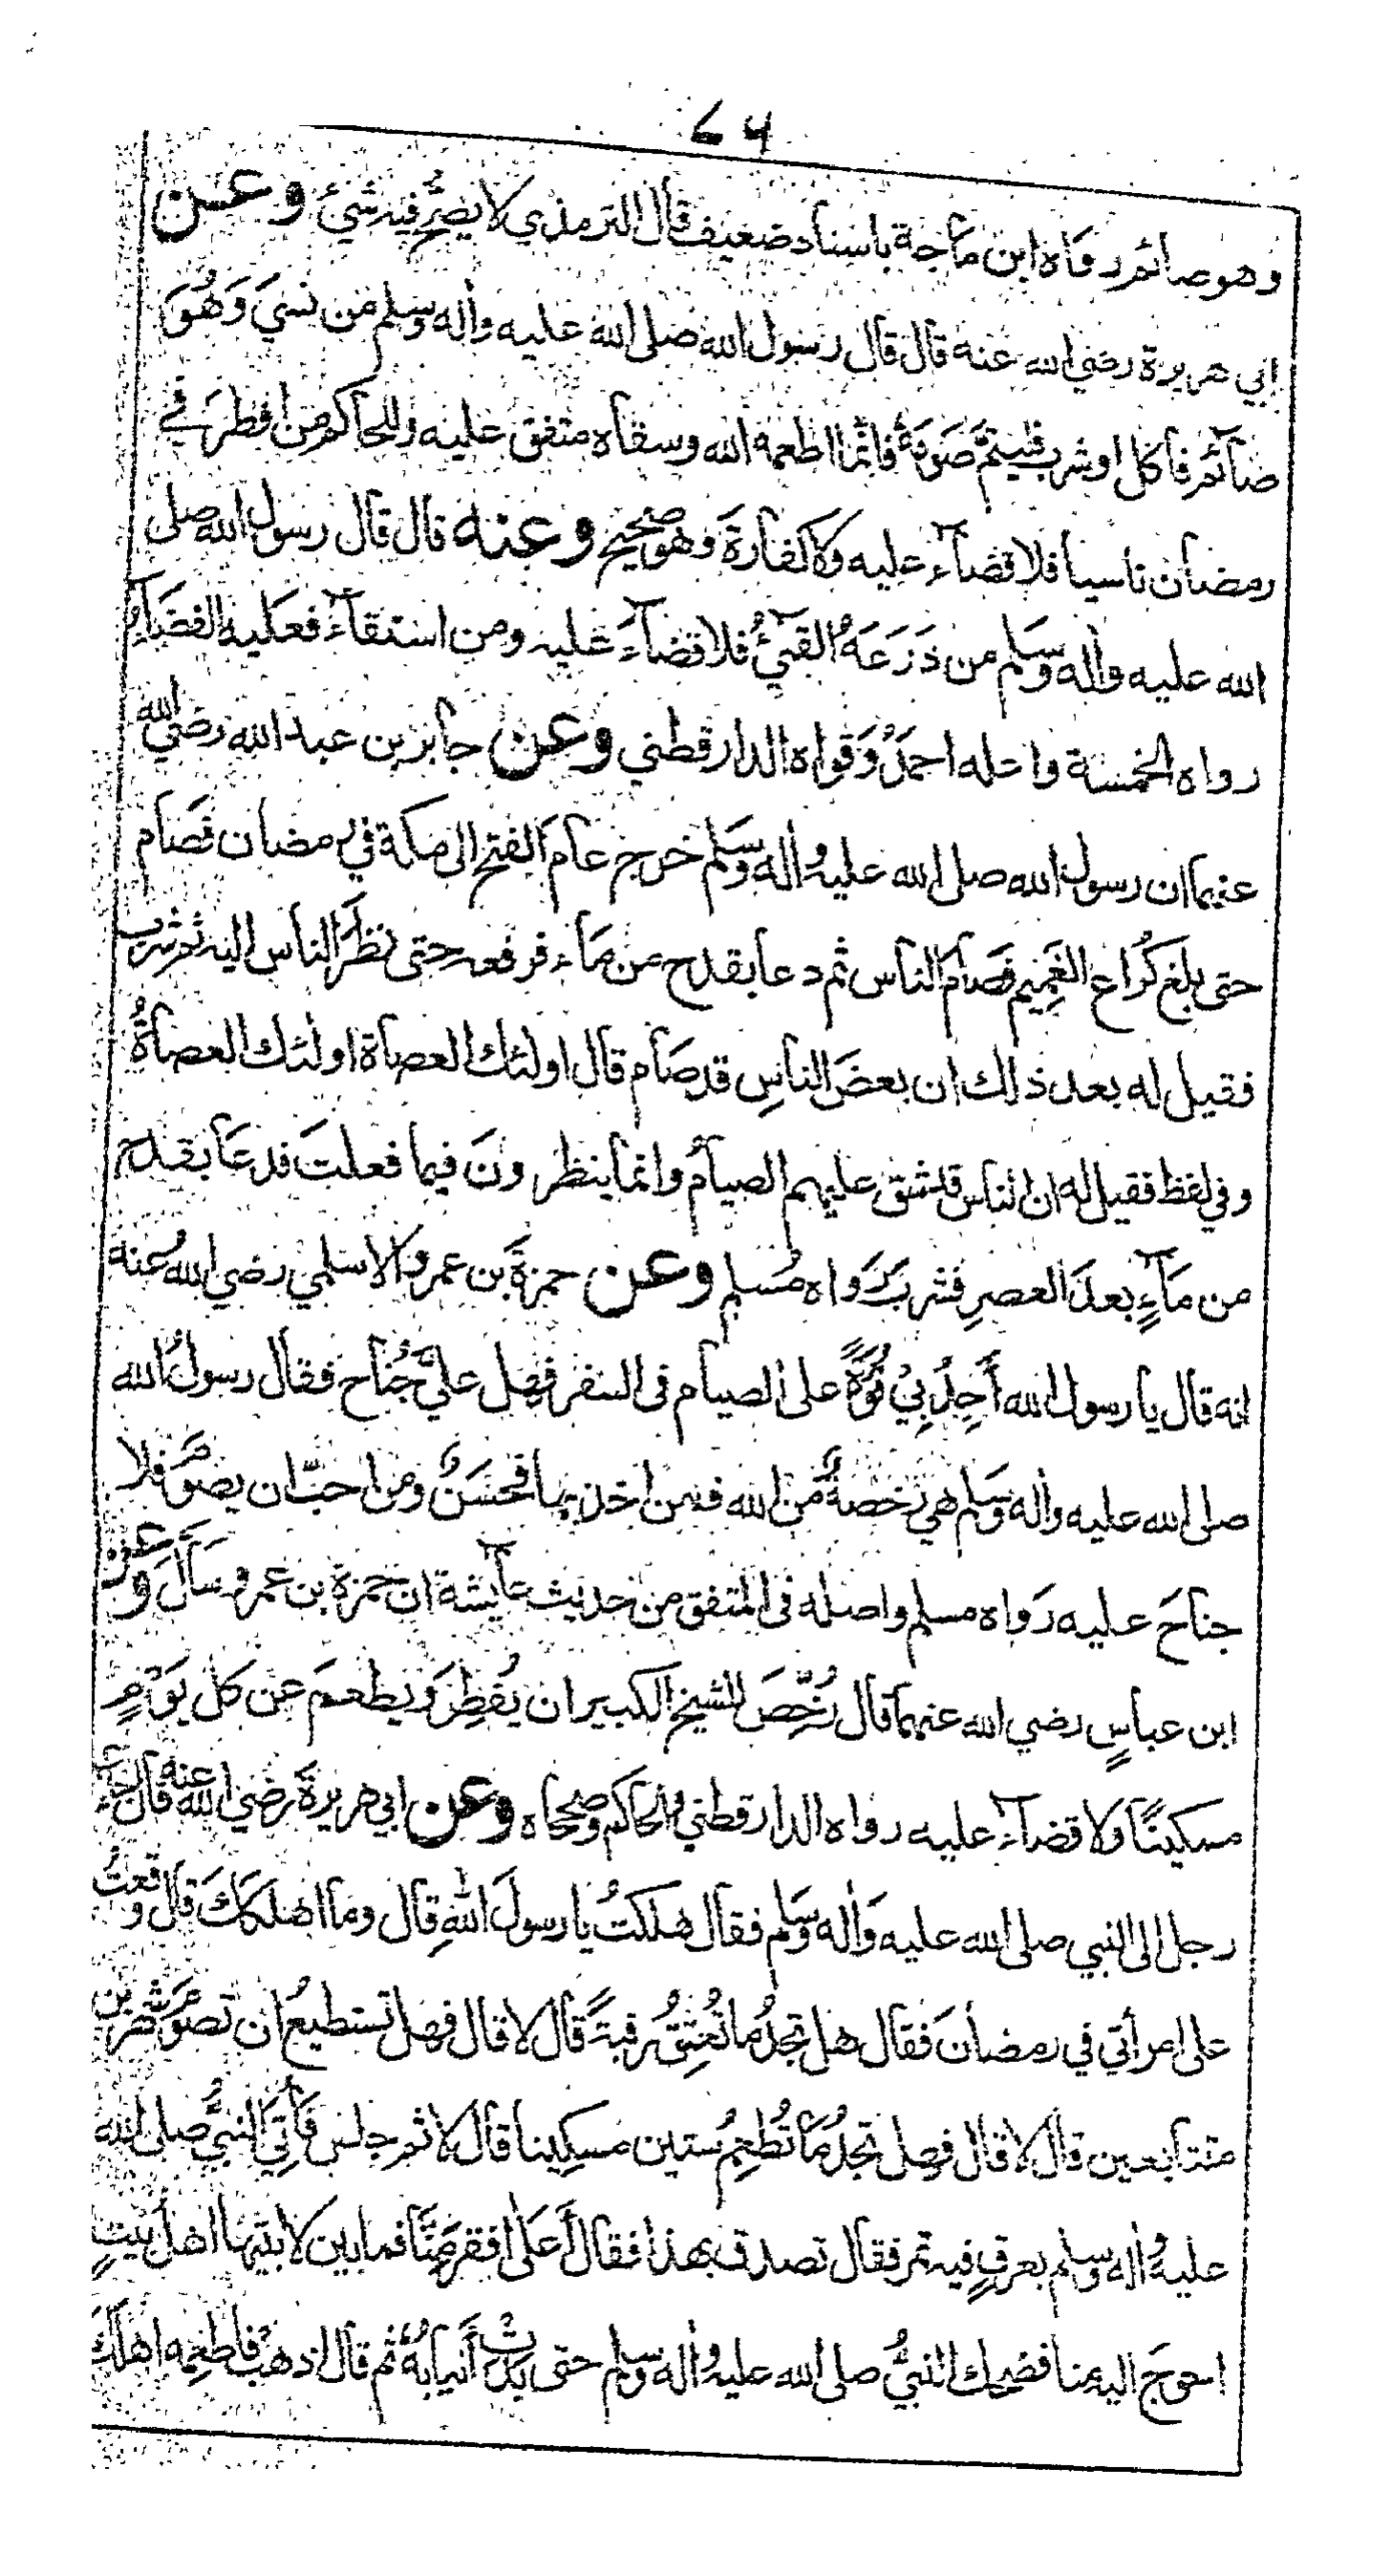 وهو صائم رواه ابن ماجة باسناد ضعيف قال الترمذي لا يصحُّ فيه شيئ وعن
ابي هريرة رضي الله عنه قال قال رسول الله صلى الله عليه وأله وسلم من نسيَ وَهُوَ
صائم فاكل او شرب فليتمَّ صَومَهُ فانما اطعمه الله وسقاه متفق عليه وللحاكم من افطرَ في
رمضان ناسيا فلا قضآء عليه ولا كفارةَ وهو صحيح وعنه قال قال رسول الله صلى
الله عليه وأله وسَلم من ذَرَعَهُ القيئُ فلا قضآءَ عليه ومن استقآءَ فعَليه القضآء
رواه الخمسة واعله احمدُ وَقواه الدارقطني وعن جابر بن عبد الله رضي الله
عنهما ان رسول الله صلى الله عليه وأله وسَلم خرج عامَ الفتح الى مكة في رمضان فصَام
حتى بلغ كُراع الغَمِيم فصَام الناس ثم دعا بقدح من مَاء فرفعه حتى نظَرَ الناس اليه ثم شرب
فقيل له بعد ذلك ان بعضَ الناسِ قد صَام قال اولئك العصاة اولئك العصاةُ
وفي لفظ فقيل له ان الناس قد شق عليهم الصيامُ وانما ينظرونَ فيما فعلتَ فدعَا بقدح
من مَآءٍ بعدَ العصرِ فشربَ رَوَاه مُسلم وعن حمزةَ بن عمرو الاسلمي رضي الله عنه
انه قال يا رسول الله أَجِدُ بِيْ قُوَّةً على الصيام فى السفر فهل عليَّ جُناح فقال رسولُ الله
صلى الله عليه وأله وسَلم هي رُخصةٌ من الله فمن اخذ بها فحَسَنٌ ومن احبّ ان يصومَ فلا
جناحَ عليه رَواه مسلم واصله فى المتفق من حديث عآيشة ان حمزة بن عمرو سَأَلَ وعن
ابن عباسٍ رضي الله عنهما قال رُخِّصَ للشيخ الكبير ان يُفطِرَ ويطعمَ عن كل يَوْمٍ
مسكينًا ولا قضآء عليه رواه الدارقطني والحاكم وصححاه وعن ابي هريرةَ رضي الله عنه قال جاء
رجل الى النبي صلى الله عليه وَأله وسَلم فقال هلكتُ يا رسولَ اللهِ قال وما اهلكَكَ قال وقعتُ
على امرأتي في رمضانَ فقال هل تجدُ ما تُعتِقُ رقبةً قال لا قال فهل تستطيعُ ان تصومَ شهرين
متتابعين قال لا قال فهل تجدُ مَا تُطعِمُ ستين مسكِينا قال لا ثم جلس فأُتِيَ النبيُّ صلى الله
عليه وأله وسلم بعرقٍ فيه تمر فقال تصدق بهذا فقال أَعَلى افقرَ مِنَّا فما بين لابتيها اهلُ بيتٍ
احوجَ اليه منا فضحك النبيُّ صلى الله عليه وأله وسلم حتى بدَت أَنيابُهُ ثم قال اذهبْ فاطعِمه اهلَكَ